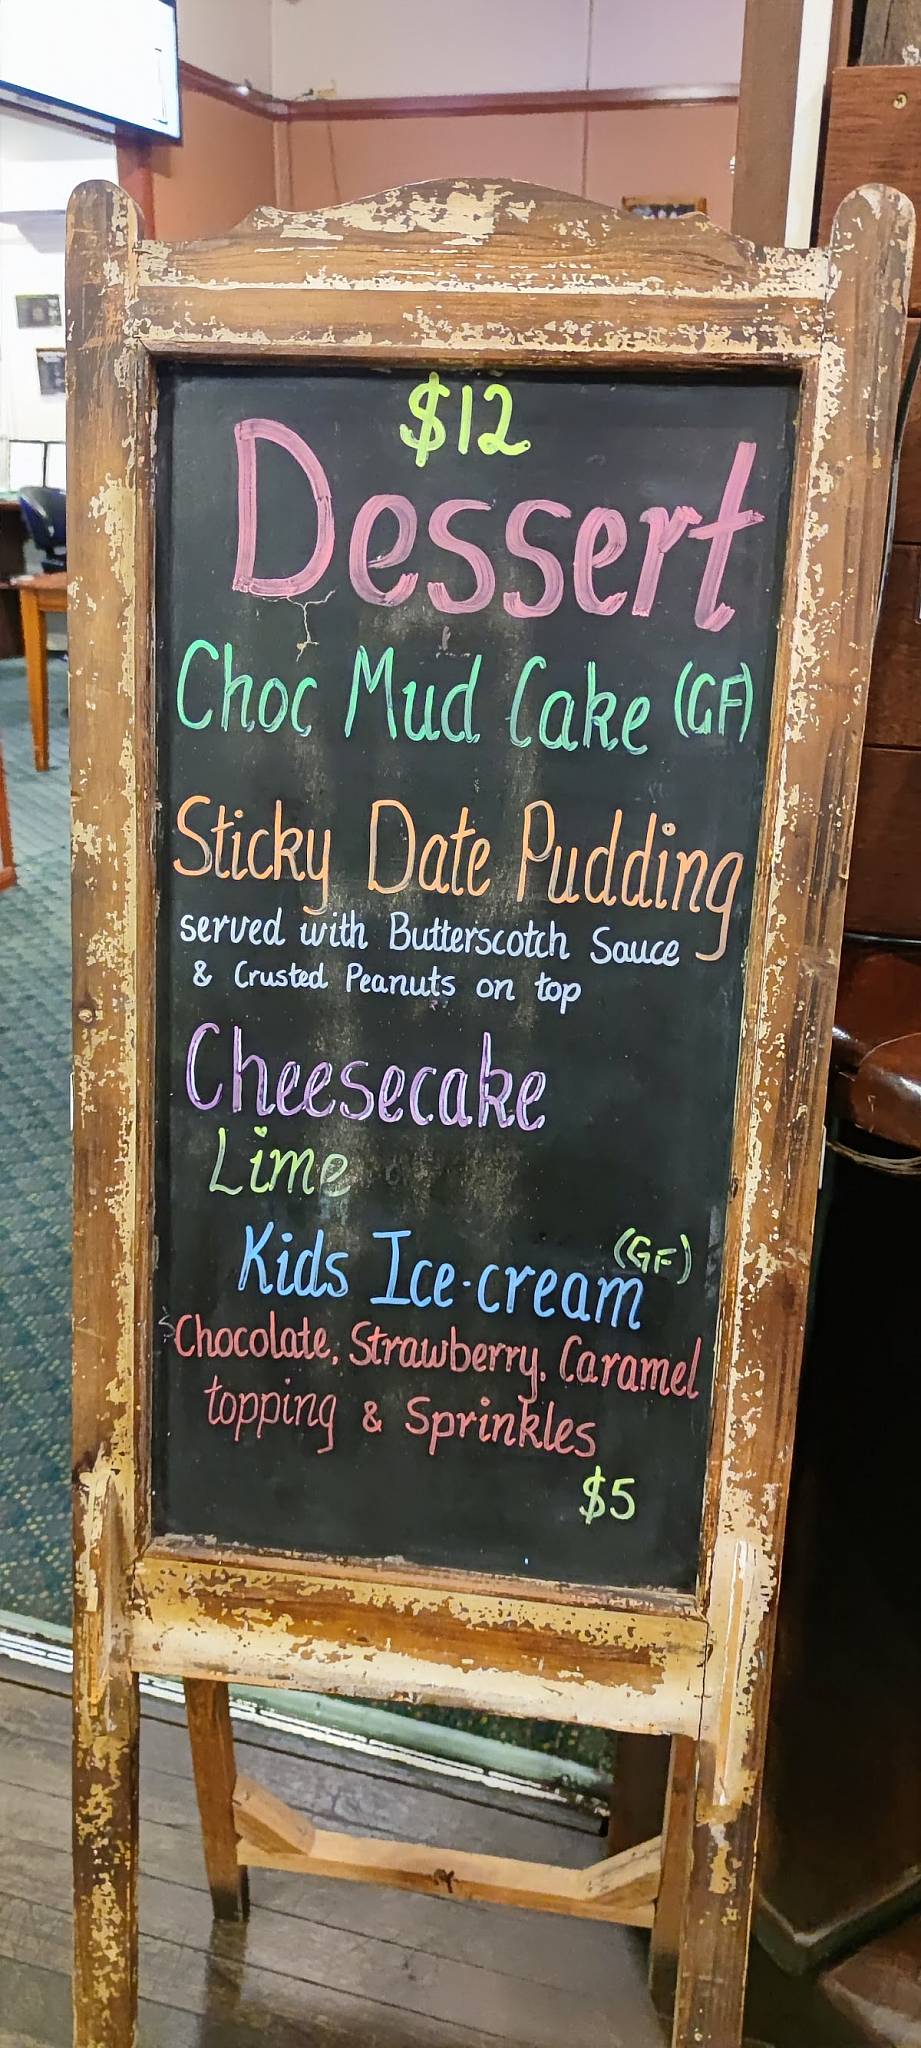 $12
Dessert
Choc Mud Cake (GF)
Sticky Date Pudding
served with Butterscotch Sauce
& Crusted Peanuts on top
Cheesecake
Lime
Kids Ice-cream (GF)
Chocolate, Strawberry, Caramel
topping & Sprinkles
$5